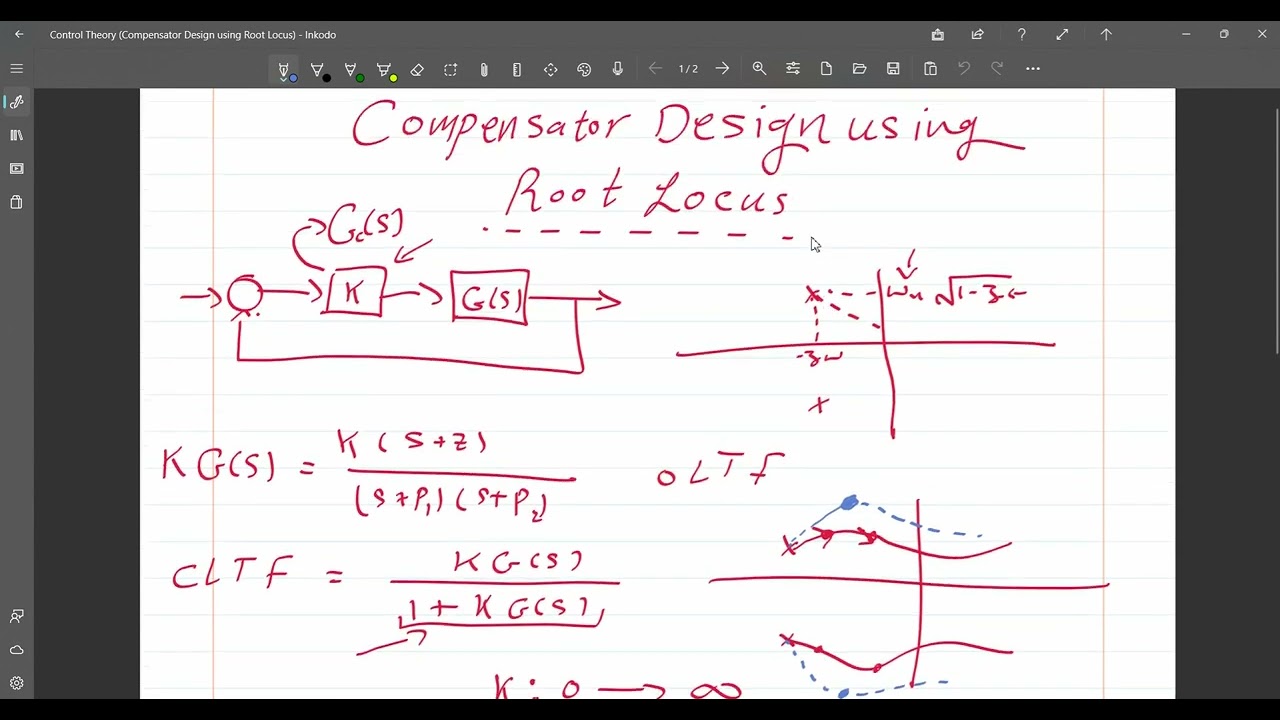 Control Theory (Compensator Design using Root Locus) - Inkodo
1/2
Compensator Design using
Root Locus
Gc(s)
K
G(s)
ωn √1-ζ
-ζω
KG(s) = K(s+z) / (s+p1)(s+p2)
OLTF
CLTF = KG(s) / 1+KG(s)
K: 0 → ∞